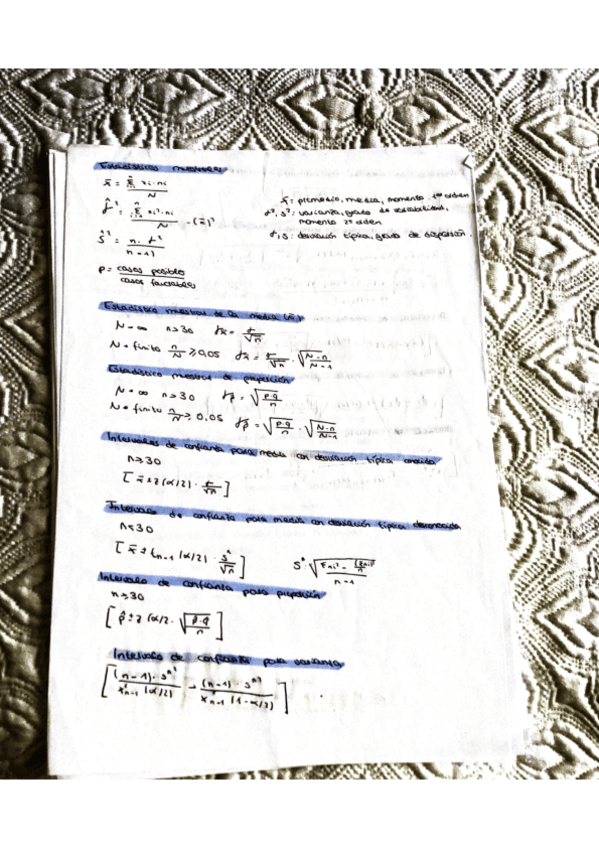 Estadísticos muestrales
x̄ = Σ xi·ni / N
σ̂² = Σ xi²·ni / N - (x̄)²
ŝ² = n·σ² / n-1
p = casos posibles / casos favorables
x̄: promedio, media, momento 1er orden
σ², s²: varianza, grado de variabilidad, momento 2º orden
σ, s: desviación típica, grado de dispersión.
Estadístico muestral de la media (x̄)
N→∞ n>30 σx̄ = σ/√n
N→finito n/N ≥ 0,05 σx̄ = σ/√n · √(N-n / N-1)
Estadístico muestral de proporción
N→∞ n>30 σp̂ = √(p·q / n)
N→finito n/N ≥ 0.05 σp̂ = √(p·q / n) · √(N-n / N-1)
Intervalos de confianza para media con desviación típica conocida
n≥30
[x̄ ± z (α/2) · σ/√n]
Intervalo de confianza para media con desviación típica desconocida
n≤30
[x̄ ± t n-1 (α/2) · ŝ/√n] ŝ: √(Σxi² - (Σxi)²/n / n-1)
Intervalo de confianza para proporción
n≥30
[p̂ ± z (α/2 · √(p̂·q̂ / n)]
Intervalo de confianza para varianza
[(n-1)·ŝ² / x²n-1 (α/2) - (n-1)·ŝ² / x²n-1 (1-α/2)]